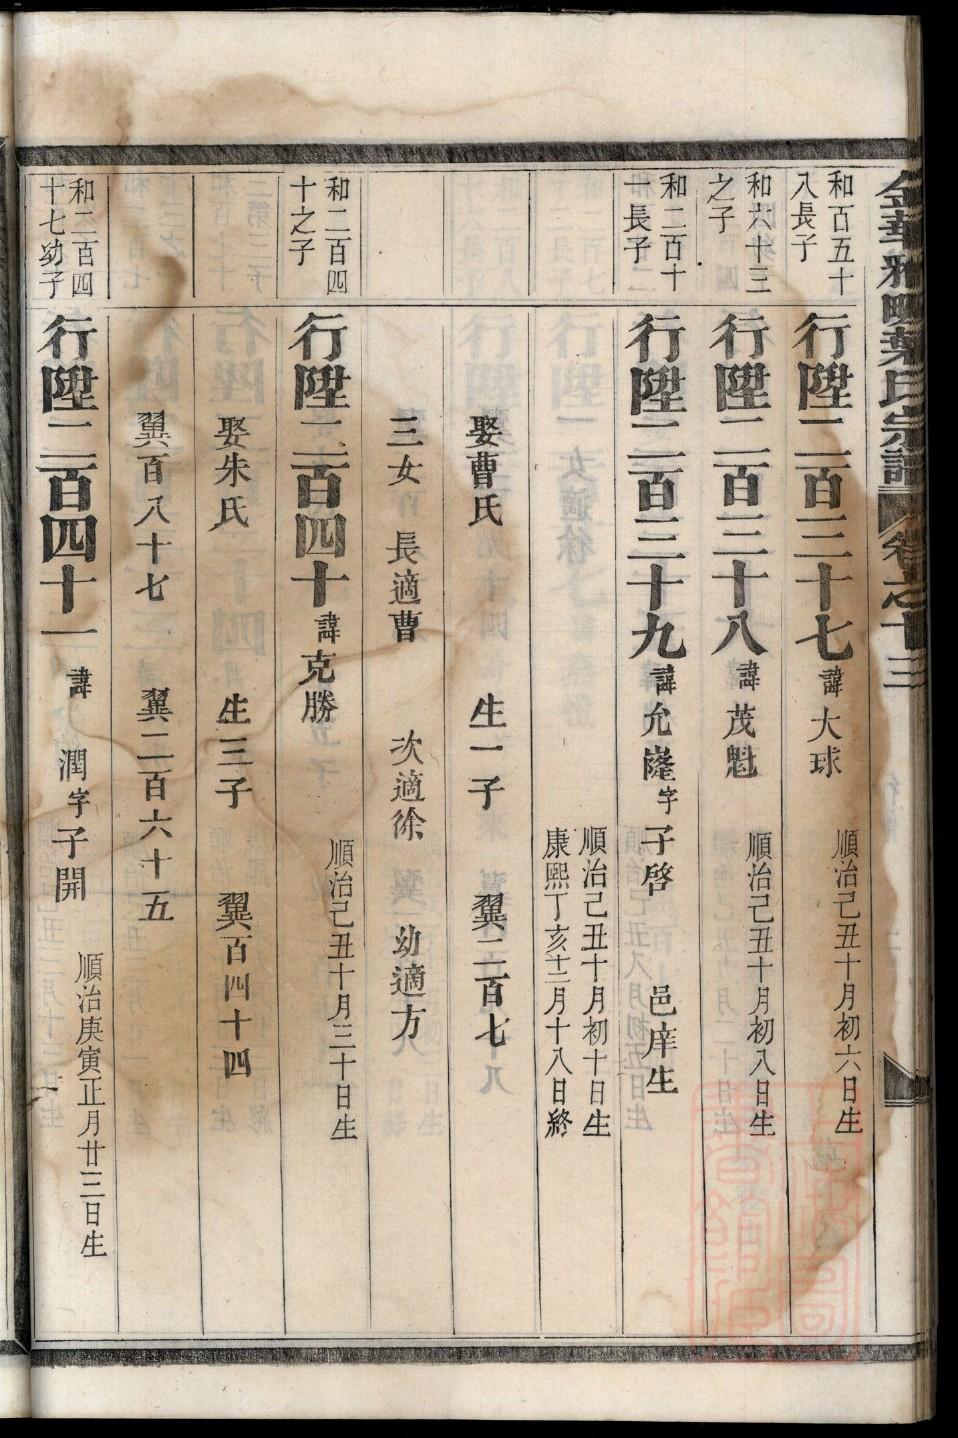 金華雅畈葉氏宗譜 卷之十三
和百五十
八長子
行陞二百三十七 諱大球 順治己丑十月初六日生
和六十三
之子
行陞二百三十八 諱茂魁 順治己丑十月初八日生
和二百十
一長子
行陞二百三十九 諱允嶐 字子啓 邑庠生
順治己丑十月初十日生
康熙丁亥十二月十八日終
娶曹氏 生一子 翼二百七
三女 長適曹 次適徐 幼適方
和二百四
十之子
行陞二百四十 諱克勝 順治己丑十月三十日生
娶朱氏 生三子 翼百四十四
翼百八十七 翼二百六十五
和二百四
十七幼子
行陞二百四十一 諱潤 字子開 順治庚寅正月廿三日生